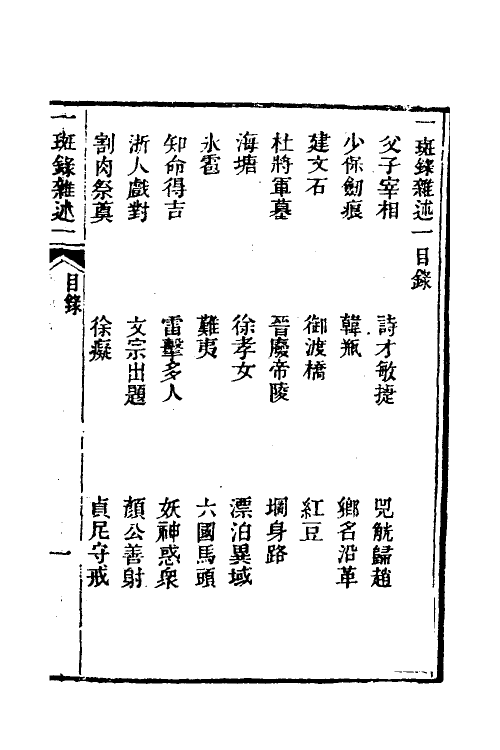 一斑錄雜述一目錄
父子宰相 詩才敏捷 兕觥歸趙
少保劒痕 韓瓶 鄉名沿革
建文石 御渡橋 紅豆
杜將軍墓 晉慶帝陵 堈身路
海塘 徐孝女 漂泊異域
氷雹 難夷 六國馬頭
知命得吉 雷擊多人 妖神惑衆
浙人戲對 文宗出題 顏公善射
割肉祭奠 徐癡 貞尼守戒
一斑錄雜述二 目錄 一